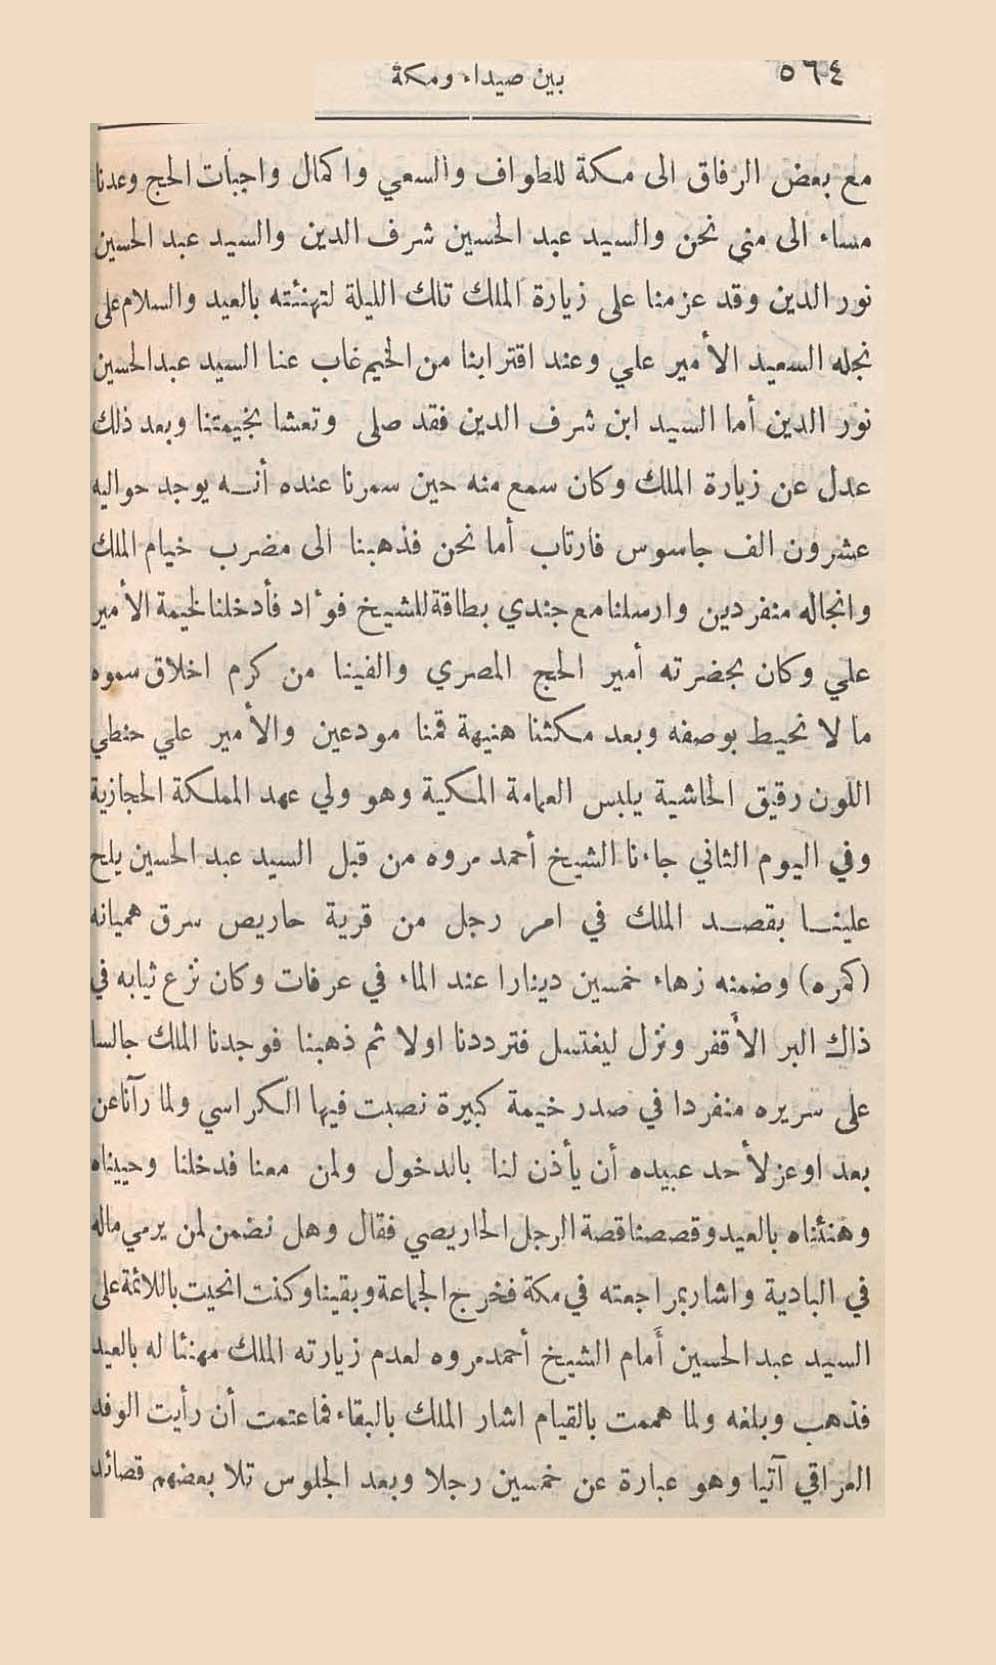 ٥٦٤
بين صيداء ومكة
مع بعض الرفاق الى مكة للطواف والسعي واكمال واجبات الحج وعدنا
مساء الى منى نحن والسيد عبد الحسين شرف الدين والسيد عبد الحسين
نور الدين وقد عزمنا على زيارة الملك تلك الليلة لتهنئته بالعيد والسلام على
نجله السعيد الأمير علي وعند اقترابنا من الخيم غاب عنا السيد عبدالحسين
نور الدين أما السيد ابن شرف الدين فقد صلى وتعشا بخيمتنا وبعد ذلك
عدل عن زيارة الملك وكان سمع منه حين سمرنا عنده أنه يوجد حواليه
عشرون الف جاسوس فارتاب أما نحن فذهبنا الى مضرب خيام الملك
وانجاله منفردين وارسلنا مع جندي بطاقة للشيخ فوءاد فأدخلنا لخيمة الأمير
علي وكان بحضرته أمير الحج المصري والفينا من كرم اخلاق سموه
ما لا نحيط بوصفه وبعد مكثنا هنيهة قمنا مودعين والأمير علي حنطي
اللون رقيق الحاشية يلبس العمامة المكية وهو ولي عهد المملكة الحجازية
وفي اليوم الثاني جاءنا الشيخ أحمد مروه من قبل السيد عبد الحسين يلح
علينا بقصد الملك في امر رجل من قرية حاريص سرق هميانه
(كمره) وضمنه زهاء خمسين دينارا عند الماء في عرفات وكان نزع ثيابه في
ذاك البر الأقفر ونزل ليغتسل فترددنا اولا ثم ذهبنا فوجدنا الملك جالسا
على سريره منفردا في صدر خيمة كبيرة نصبت فيها الكراسي ولما رآنا عن
بعد اوعز لأحد عبيده أن يأذن لنا بالدخول ولمن معنا فدخلنا وحييناه
وهنئناه بالعيد وقصصنا قصة الرجل الحاريصي فقال وهل نضمن لمن يرمي ماله
في البادية واشار بمراجعته في مكة فخرج الجماعة وبقينا وكنت انحيت باللائمة على
السيد عبد الحسين أمام الشيخ أحمد مروه لعدم زيارته الملك مهنئا له بالعيد
فذهب وبلغه ولما هممت بالقيام اشار الملك بالبقاء فما عتمت أن رأيت الوفد
العراقي آتيا وهو عبارة عن خمسين رجلا وبعد الجلوس تلا بعضهم قصائد